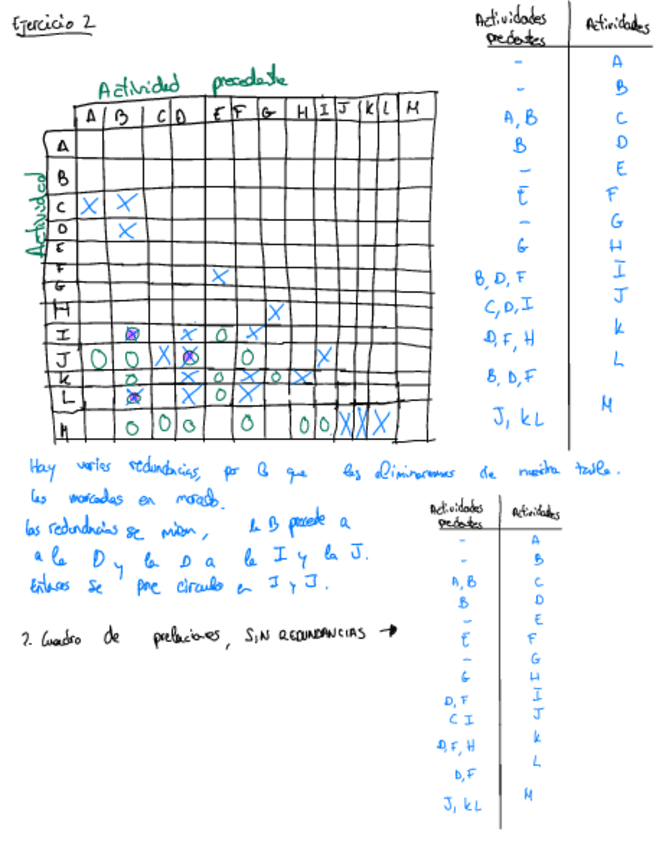 Ejercicio 2
Actividades predentes | Actividades
- | A
- | B
A, B | C
B | D
- | E
E | F
- | G
G | H
B, D, F | I
C, D, I | J
D, F, H | K
B, D, F | L
J, K L | M
Actividad precedente
A B C D E F G H I J K L M
Actividad
A
B
C X X
D X
E
F X
G
H X
I X X O X
J O O X X O X
K O X O X O X
L X X O X
M O O O O O O X X X
Hay varias redundancias, por lo que las eliminaremos de nuestra tabla.
Las marcadas en morado.
Las redundancias se miran, la B precede a
a la D y la D a la I y la J.
Entonces se pone círculo en I y J.
2. Cuadro de prelaciones, SIN REDUNDANCIAS →
Actividades predentes | Actividades
- | A
- | B
A, B | C
B | D
- | E
E | F
- | G
G | H
D, F | I
C I | J
D, F, H | K
D, F | L
J, K L | M